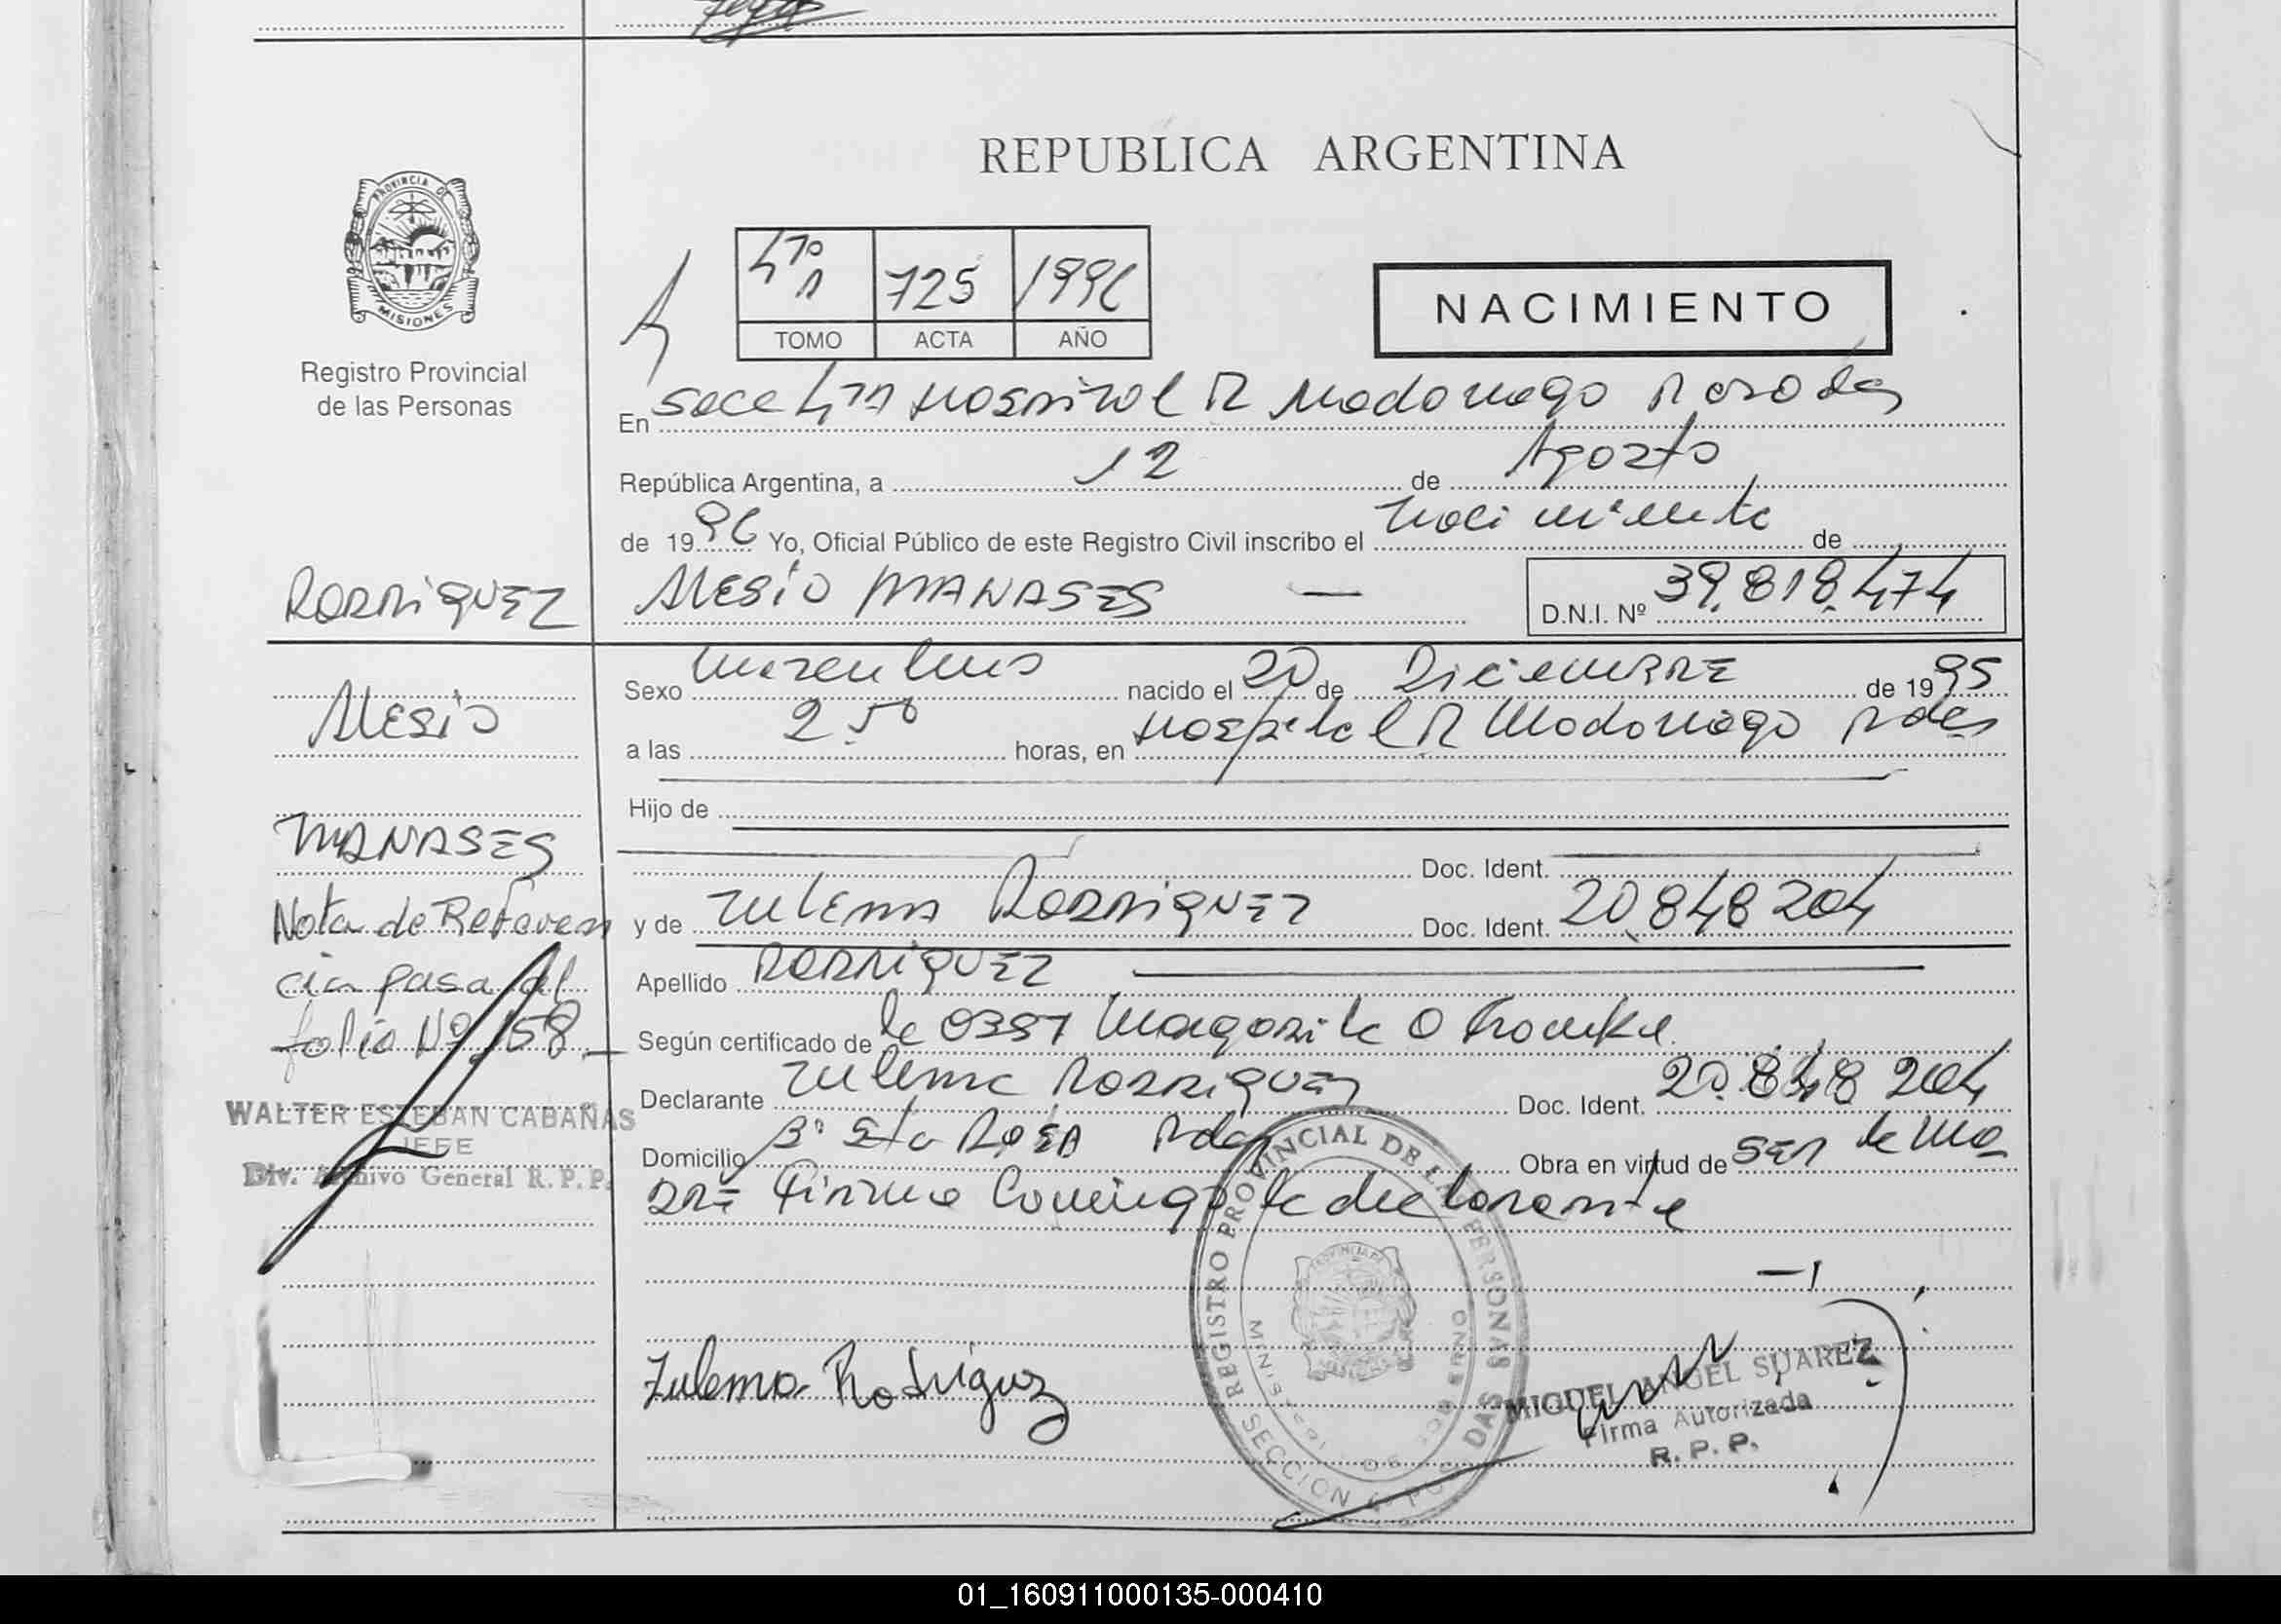 REPUBLICA ARGENTINA
PROVINCIA DE
MISIONES
Registro Provincial
de las Personas
4to 725 1996
TOMO ACTA AÑO
NACIMIENTO
En Secc 4ta Hospital R Madariaga Posadas
República Argentina, a 12 de Agosto
de 1996 Yo, Oficial Público de este Registro Civil inscribo el nacimiento de
RODRIGUEZ
ALESIO MANASES — D.N.I. Nº 39.818.474
Sexo masculino nacido el 20 de Diciembre de 1995
ALESIO
a las 2.50 horas, en Hospital R Madariaga Pdas
Hijo de
MANASES
Doc. Ident.
Nota de Referen
y de Zulema Rodriguez Doc. Ident. 20.848.204
cia pasa al
Apellido RODRIGUEZ
folio Nº 158
Según certificado de la Margarita O
Declarante Zulema Rodriguez Doc. Ident. 20.848 204
WALTER ESTEBAN CABAÑAS
JEFE
Div. Archivo General R. P. P.
Domicilio Bº Sta Rosa Pdas Obra en virtud de ser la ma
dre Firma Conmigo la declarante
REGISTRO PROVINCIAL DE LAS PERSONAS
SECCION
Zulema Rodriguez
MIGUEL ANGEL SUAREZ
Firma Autorizada
R. P. P.
01_160911000135-000410